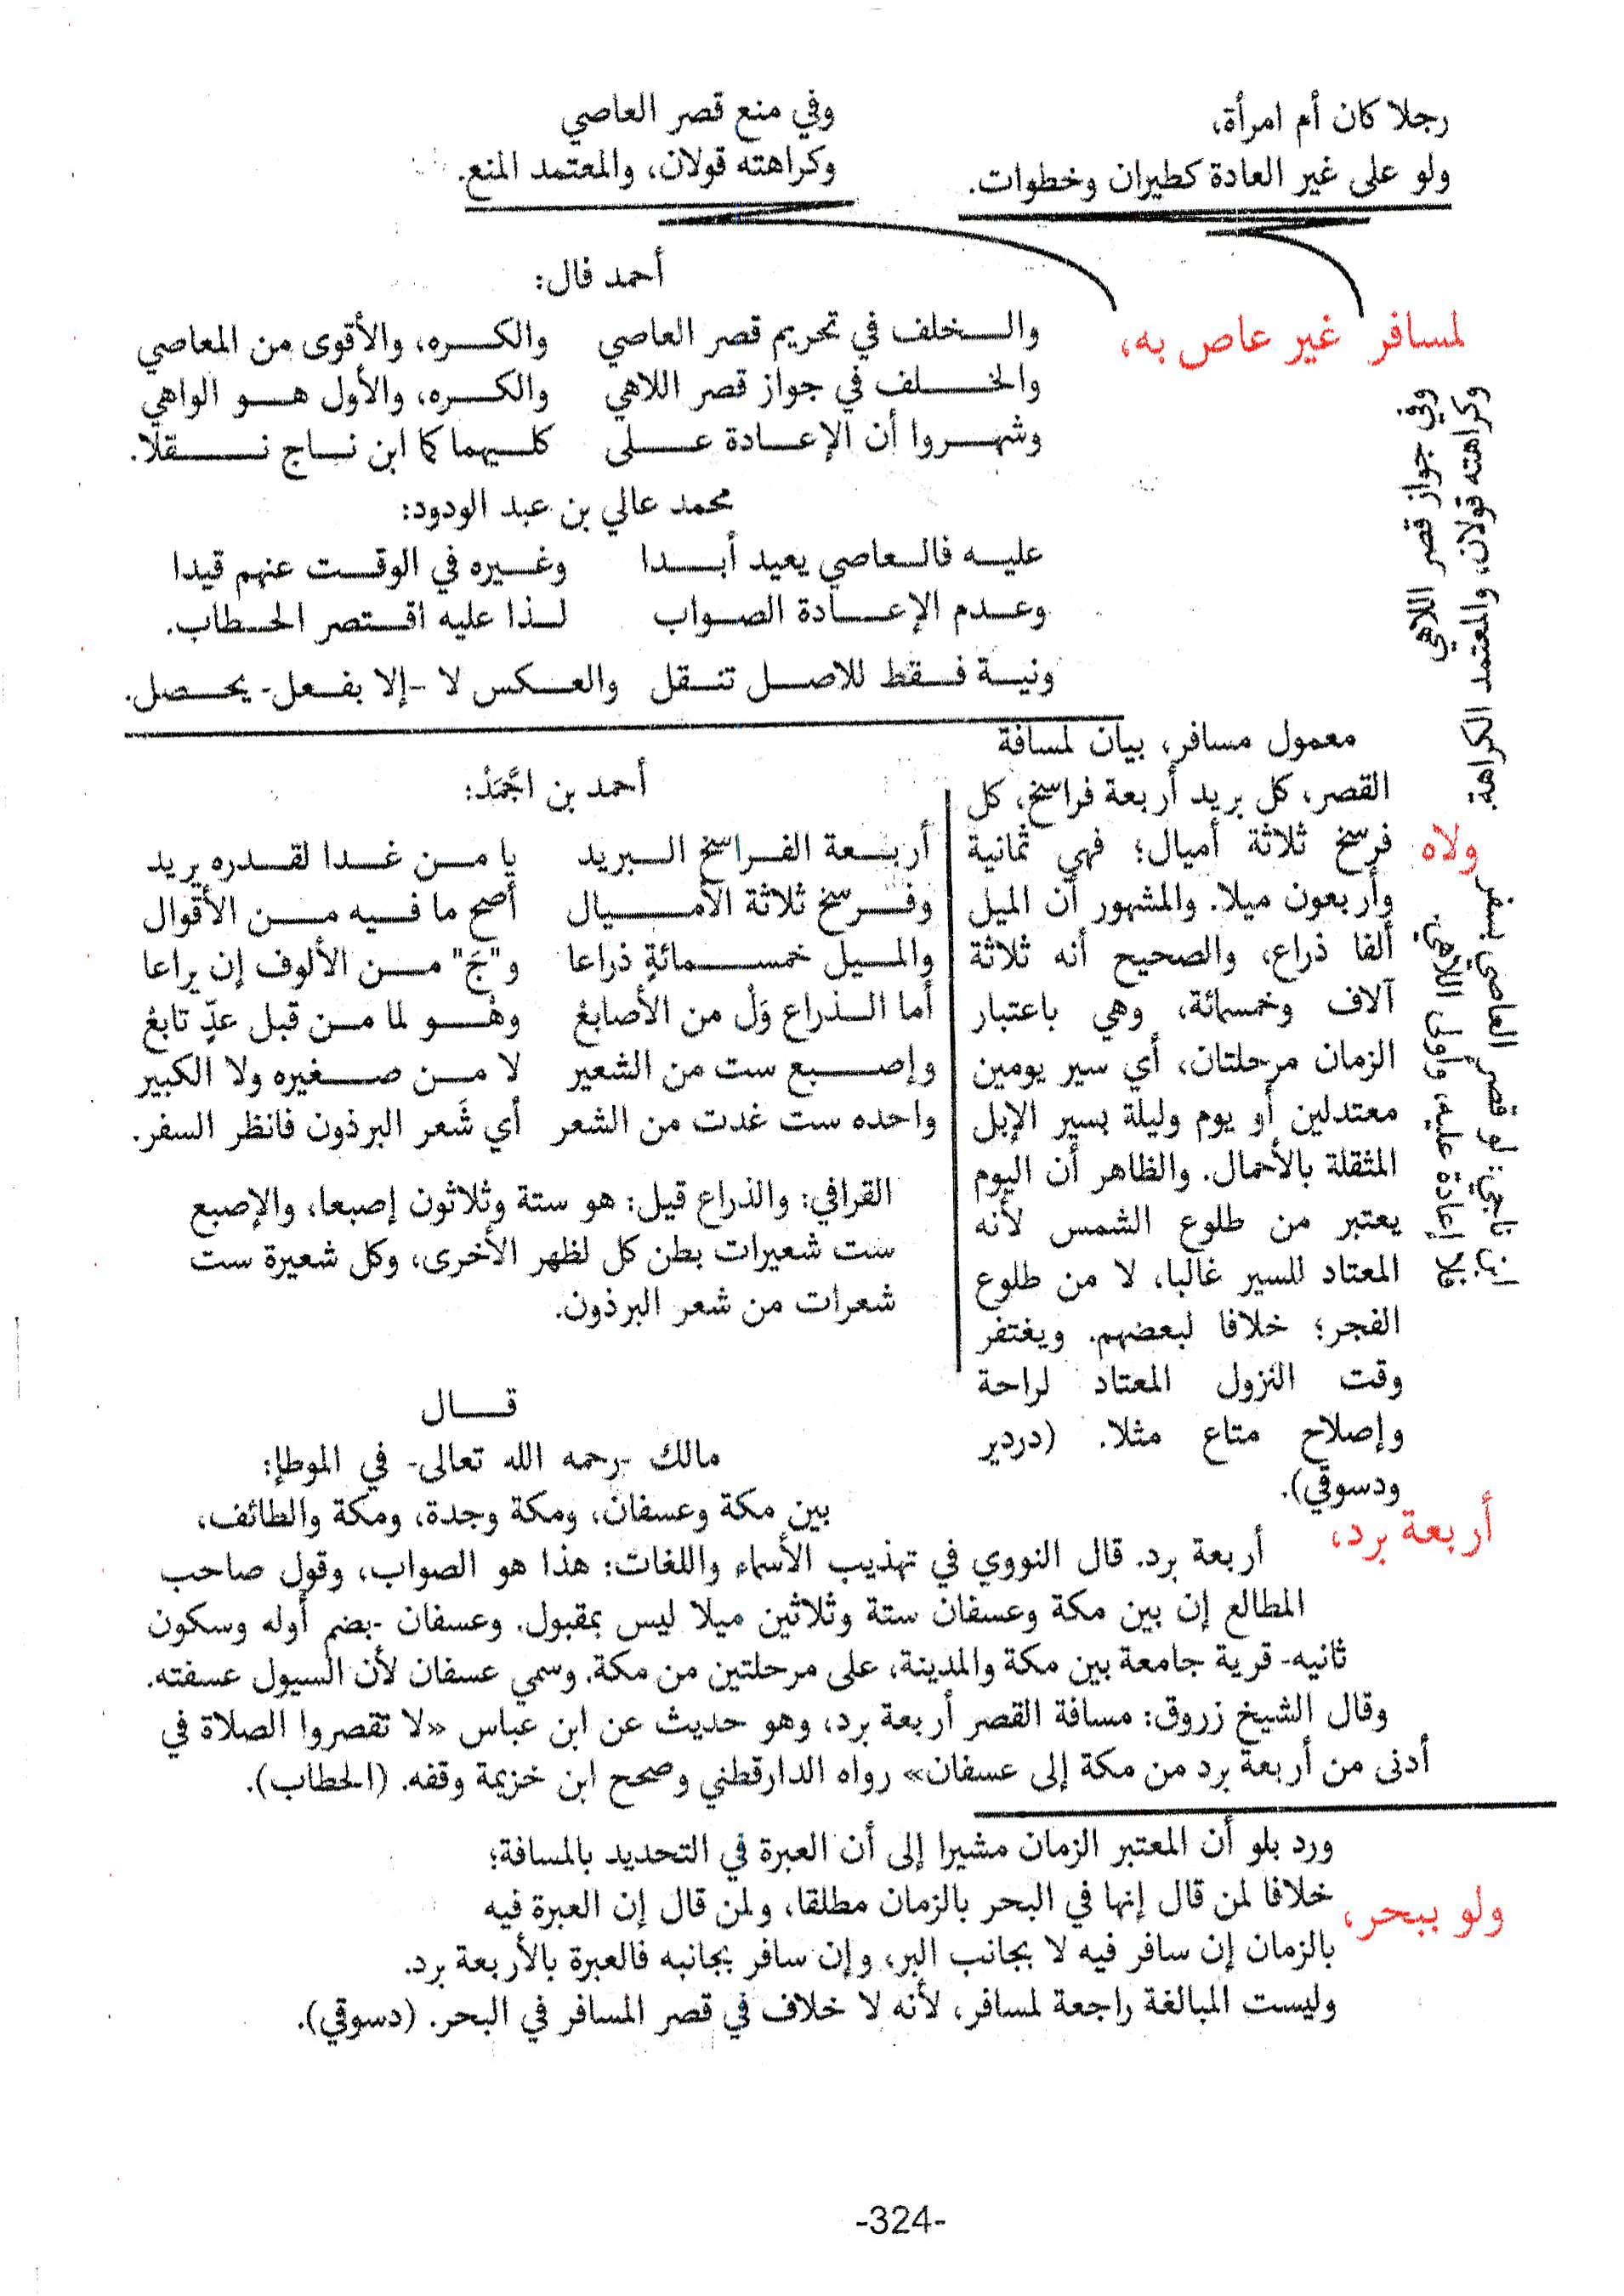 رجلا كان أم امرأة،
ولو على غير العادة كطيران وخطوات.
وفي منع قصر العاصي
وكراهته قولان، والمعتمد المنع.
لمسافر غير عاص به،
أحمد فال:
والخلف في تحريم قصر العاصي والكره، والأقوى من المعاصي
والخلف في جواز قصر اللاهي والكره، والأول هو الواهي
وشهروا أن الإعادة على كليهما كما ابن ناج نقلا.
محمد عالي بن عبد الودود:
عليه فالعاصي يعيد أبدا وغيره في الوقت عنهم قيدا
وعدم الإعادة الصواب لذا عليه اقتصر الحطاب.
ونية فقط للاصل تنقل والعكس لا -إلا بفعل- يحصل.
وفي جواز قصر اللاهي
وكراهته قولان، والمعتمد الكراهة.
ولاه
ابن ناجي: لو قصر العاصي بسفر
فلا إعادة عليه، وأولى اللاهي.
معمول مسافر، بيان لمسافة
القصر، كل بريد أربعة فراسخ، كل
فرسخ ثلاثة أميال؛ فهي ثمانية
وأربعون ميلا. والمشهور أن الميل
ألفا ذراع، والصحيح أنه ثلاثة
آلاف وخمسمائة، وهي باعتبار
الزمان مرحلتان، أي سير يومين
معتدلين أو يوم وليلة بسير الإبل
المثقلة بالأحمال. والظاهر أن اليوم
يعتبر من طلوع الشمس لأنه
المعتاد للسير غالبا، لا من طلوع
الفجر؛ خلافا لبعضهم. ويغتفر
وقت النزول المعتاد لراحة
وإصلاح متاع مثلا. (دردير
ودسوقي).
أحمد بن اجَّمَدْ:
أربعة الفراسخ البريد يا من غدا لقدره يريد
وفرسخ ثلاثة الأميال أصح ما فيه من الأقوال
والميل خمسمائةٍ ذراعا و"جَ" من الألوف إن يراعا
أما الذراع وَلْ من الأصابعْ وهْو لما من قبل عدٍّ تابعْ
وإصبع ست من الشعير لا من صغيره ولا الكبير
واحده ست غدت من الشعر أي شَعر البرذون فانظر السفر.
القرافي: والذراع قيل: هو ستة وثلاثون إصبعا، والإصبع
ست شعيرات بطن كل لظهر الأخرى، وكل شعيرة ست
شعرات من شعر البرذون.
أربعة برد،
قال
مالك -رحمه الله تعالى- في الموطإ:
بين مكة وعسفان، ومكة وجدة، ومكة والطائف،
أربعة برد. قال النووي في تهذيب الأسماء واللغات: هذا هو الصواب، وقول صاحب
المطالع إن بين مكة وعسفان ستة وثلاثين ميلا ليس بمقبول. وعسفان -بضم أوله وسكون
ثانيه- قرية جامعة بين مكة والمدينة، على مرحلتين من مكة. وسمي عسفان لأن السيول عسفته.
وقال الشيخ زروق: مسافة القصر أربعة برد، وهو حديث عن ابن عباس «لا تقصروا الصلاة في
أدنى من أربعة برد من مكة إلى عسفان» رواه الدارقطني وصحح ابن خزيمة وقفه. (الحطاب).
ورد بلو أن المعتبر الزمان مشيرا إلى أن العبرة في التحديد بالمسافة؛
ولو ببحر،
خلافا لمن قال إنها في البحر بالزمان مطلقا، ولمن قال إن العبرة فيه
بالزمان إن سافر فيه لا بجانب البر، وإن سافر بجانبه فالعبرة بالأربعة برد.
وليست المبالغة راجعة لمسافر، لأنه لا خلاف في قصر المسافر في البحر. (دسوقي).
-324-